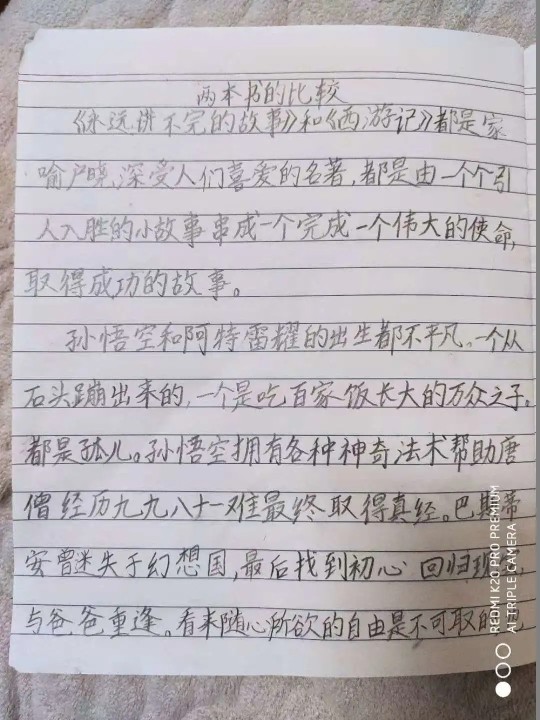 两本书的比较
《永远讲不完的故事》和《西游记》都是家
喻户晓,深受人们喜爱的名著,都是由一个个引
人入胜的小故事串成一个完成一个伟大的使命,
取得成功的故事。
孙悟空和阿特雷耀的出生都不平凡。一个从
石头蹦出来的,一个是吃百家饭长大的万众之子。
都是孤儿。孙悟空拥有各种神奇法术帮助唐
僧经历九九八十一难最终取得真经。巴斯蒂
安曾迷失于幻想国,最后找到初心 回归现
与爸爸重逢。看来随心所欲的自由是不可取的
REDMI K20 PRO PREMIUM
AI TRIPLE CAMERA